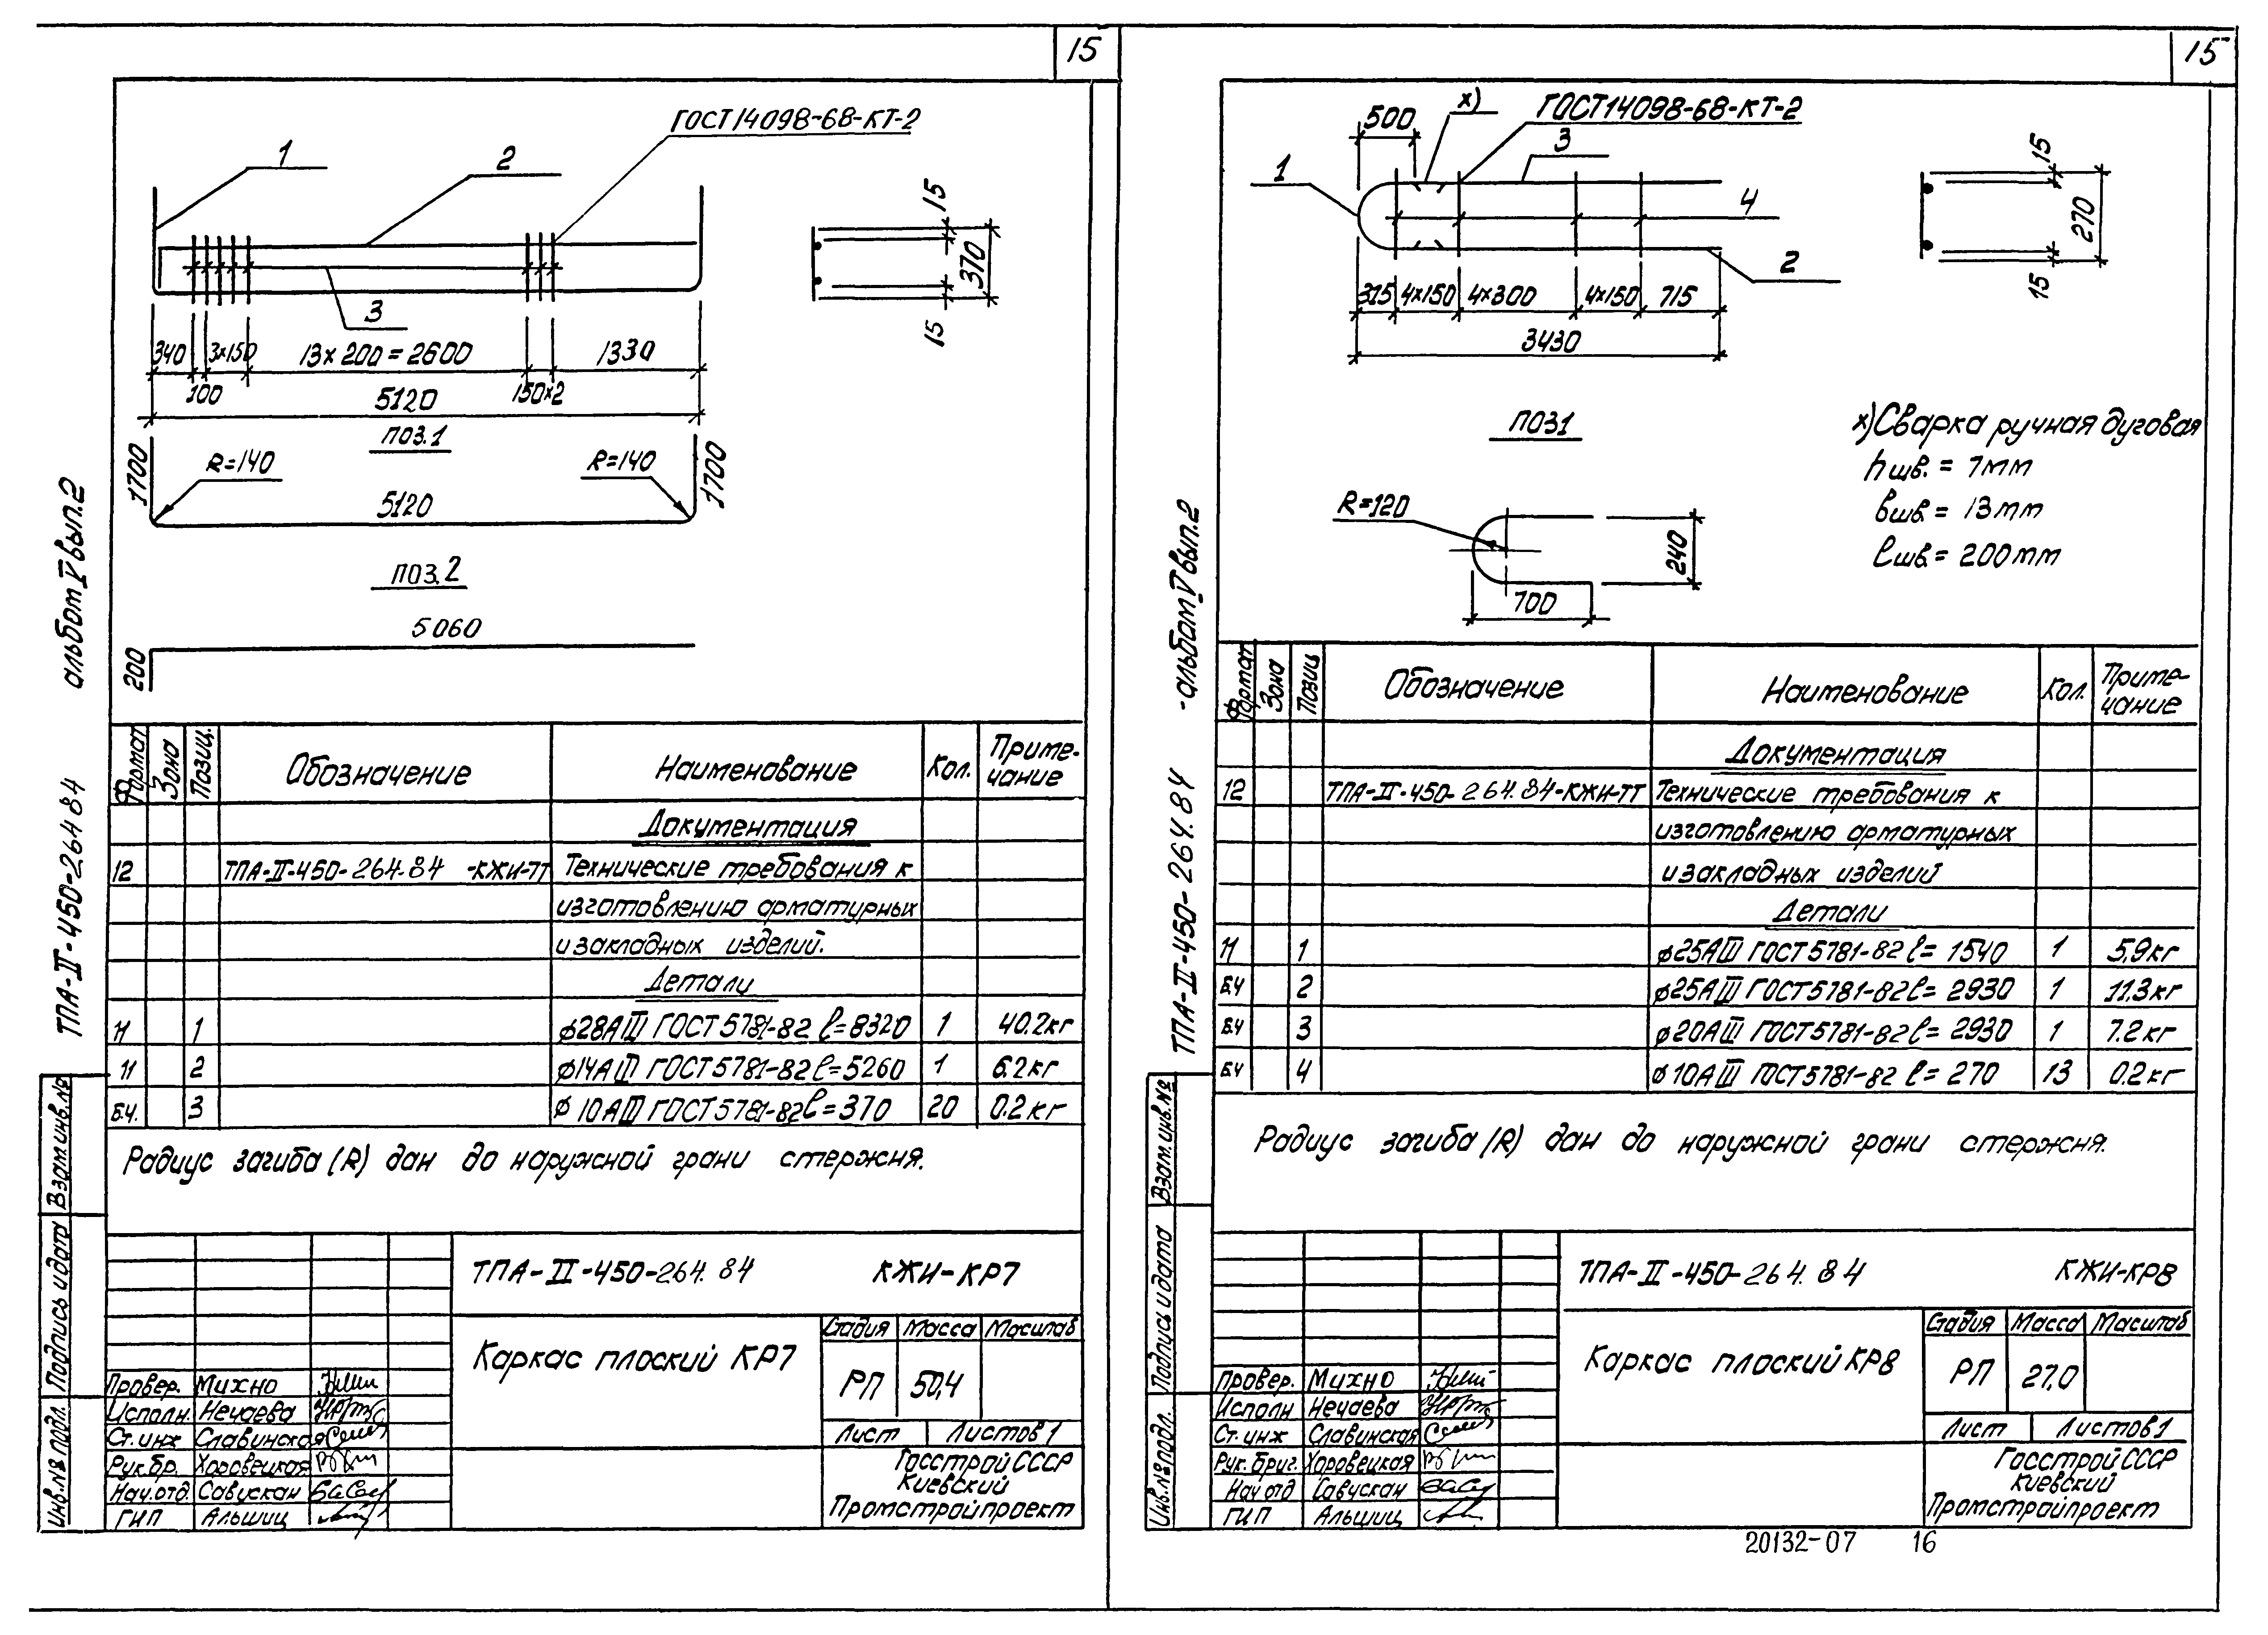 15
ГОСТ14098-68-КТ-2
1
2
3
15
370
15
340
3×150
13×200=2600
1330
100
150×2
5120
ПОЗ.1
1700
R=140
R=140
1700
5120
ПОЗ.2
5060
200
альбом V вып.2
ТПА-II-450-264 84
Формат
Зона
Позиц.
Обозначение
Наименование
Кол.
Приме-
чание
Документация
12 ТПА-II-450-264.84 -КЖИ-ТТ Технические требования к
изготовлению арматурных
и закладных изделий.
Детали
11 1 ø28АIII ГОСТ 5781-82 ℓ=8320 1 40.2кг
11 2 ø14АIII ГОСТ 5781-82 ℓ=5260 1 6.2кг
Б.Ч. 3 ø10АIII ГОСТ 5781-82 ℓ=370 20 0.2кг
Радиус загиба (R) дан до наружной грани стержня.
Взам.инв.№
Подпись и дата
Инв.№ подл.
ТПА-II-450-264.84 КЖИ-КР7
Каркас плоский КР7
Стадия Масса Масштаб
РП 50,4
Лист Листов 1
Госстрой СССР
Киевский
Промстройпроект
Провер. Михно
Исполн. Нечаева
Ст.инж Славинская
Рук.бр. Хоровецкая
Нач.отд. Савускан
ГИП Альшиц
15
500
х)
ГОСТ14098-68-КТ-2
3
1
4
2
15
270
15
315 4×150 4×300 4×150 715
3430
ПОЗ1
R=120
240
700
х)Сварка ручная дуговая
hшв.= 7мм
вшв.= 13мм
ℓшв.= 200мм
-альбом V вып.2
ТПА-II-450-264.84
Формат
Зона
Позиц
Обозначение
Наименование
Кол.
Приме-
чание
Документация
12 ТПА-II-450-264.84-КЖИ-ТТ Технические требования к
изготовлению арматурных
и закладных изделий
Детали
11 1 ø25АIII ГОСТ 5781-82 ℓ= 1540 1 5,9кг
Б.Ч 2 ø25АIII ГОСТ 5781-82 ℓ= 2930 1 11.3кг
Б.Ч 3 ø20АIII ГОСТ 5781-82 ℓ= 2930 1 7.2кг
Б.Ч 4 ø10АIII ГОСТ 5781-82 ℓ= 270 13 0.2кг
Радиус загиба (R) дан до наружной грани стержня.
Взам.инв.№
Подпись и дата
Инв.№ подл.
ТПА-II-450-264.84 КЖИ-КР8
Каркас плоский КР8
Стадия Масса Масштаб
РП 27,0
Лист Листов 1
Госстрой СССР
Киевский
Промстройпроект
Провер. Михно
Исполн Нечаева
Ст.инж Славинская
Рук.бриг. Хоровецкая
Нач отд Савускан
ГИП Альшиц
20132-07 16